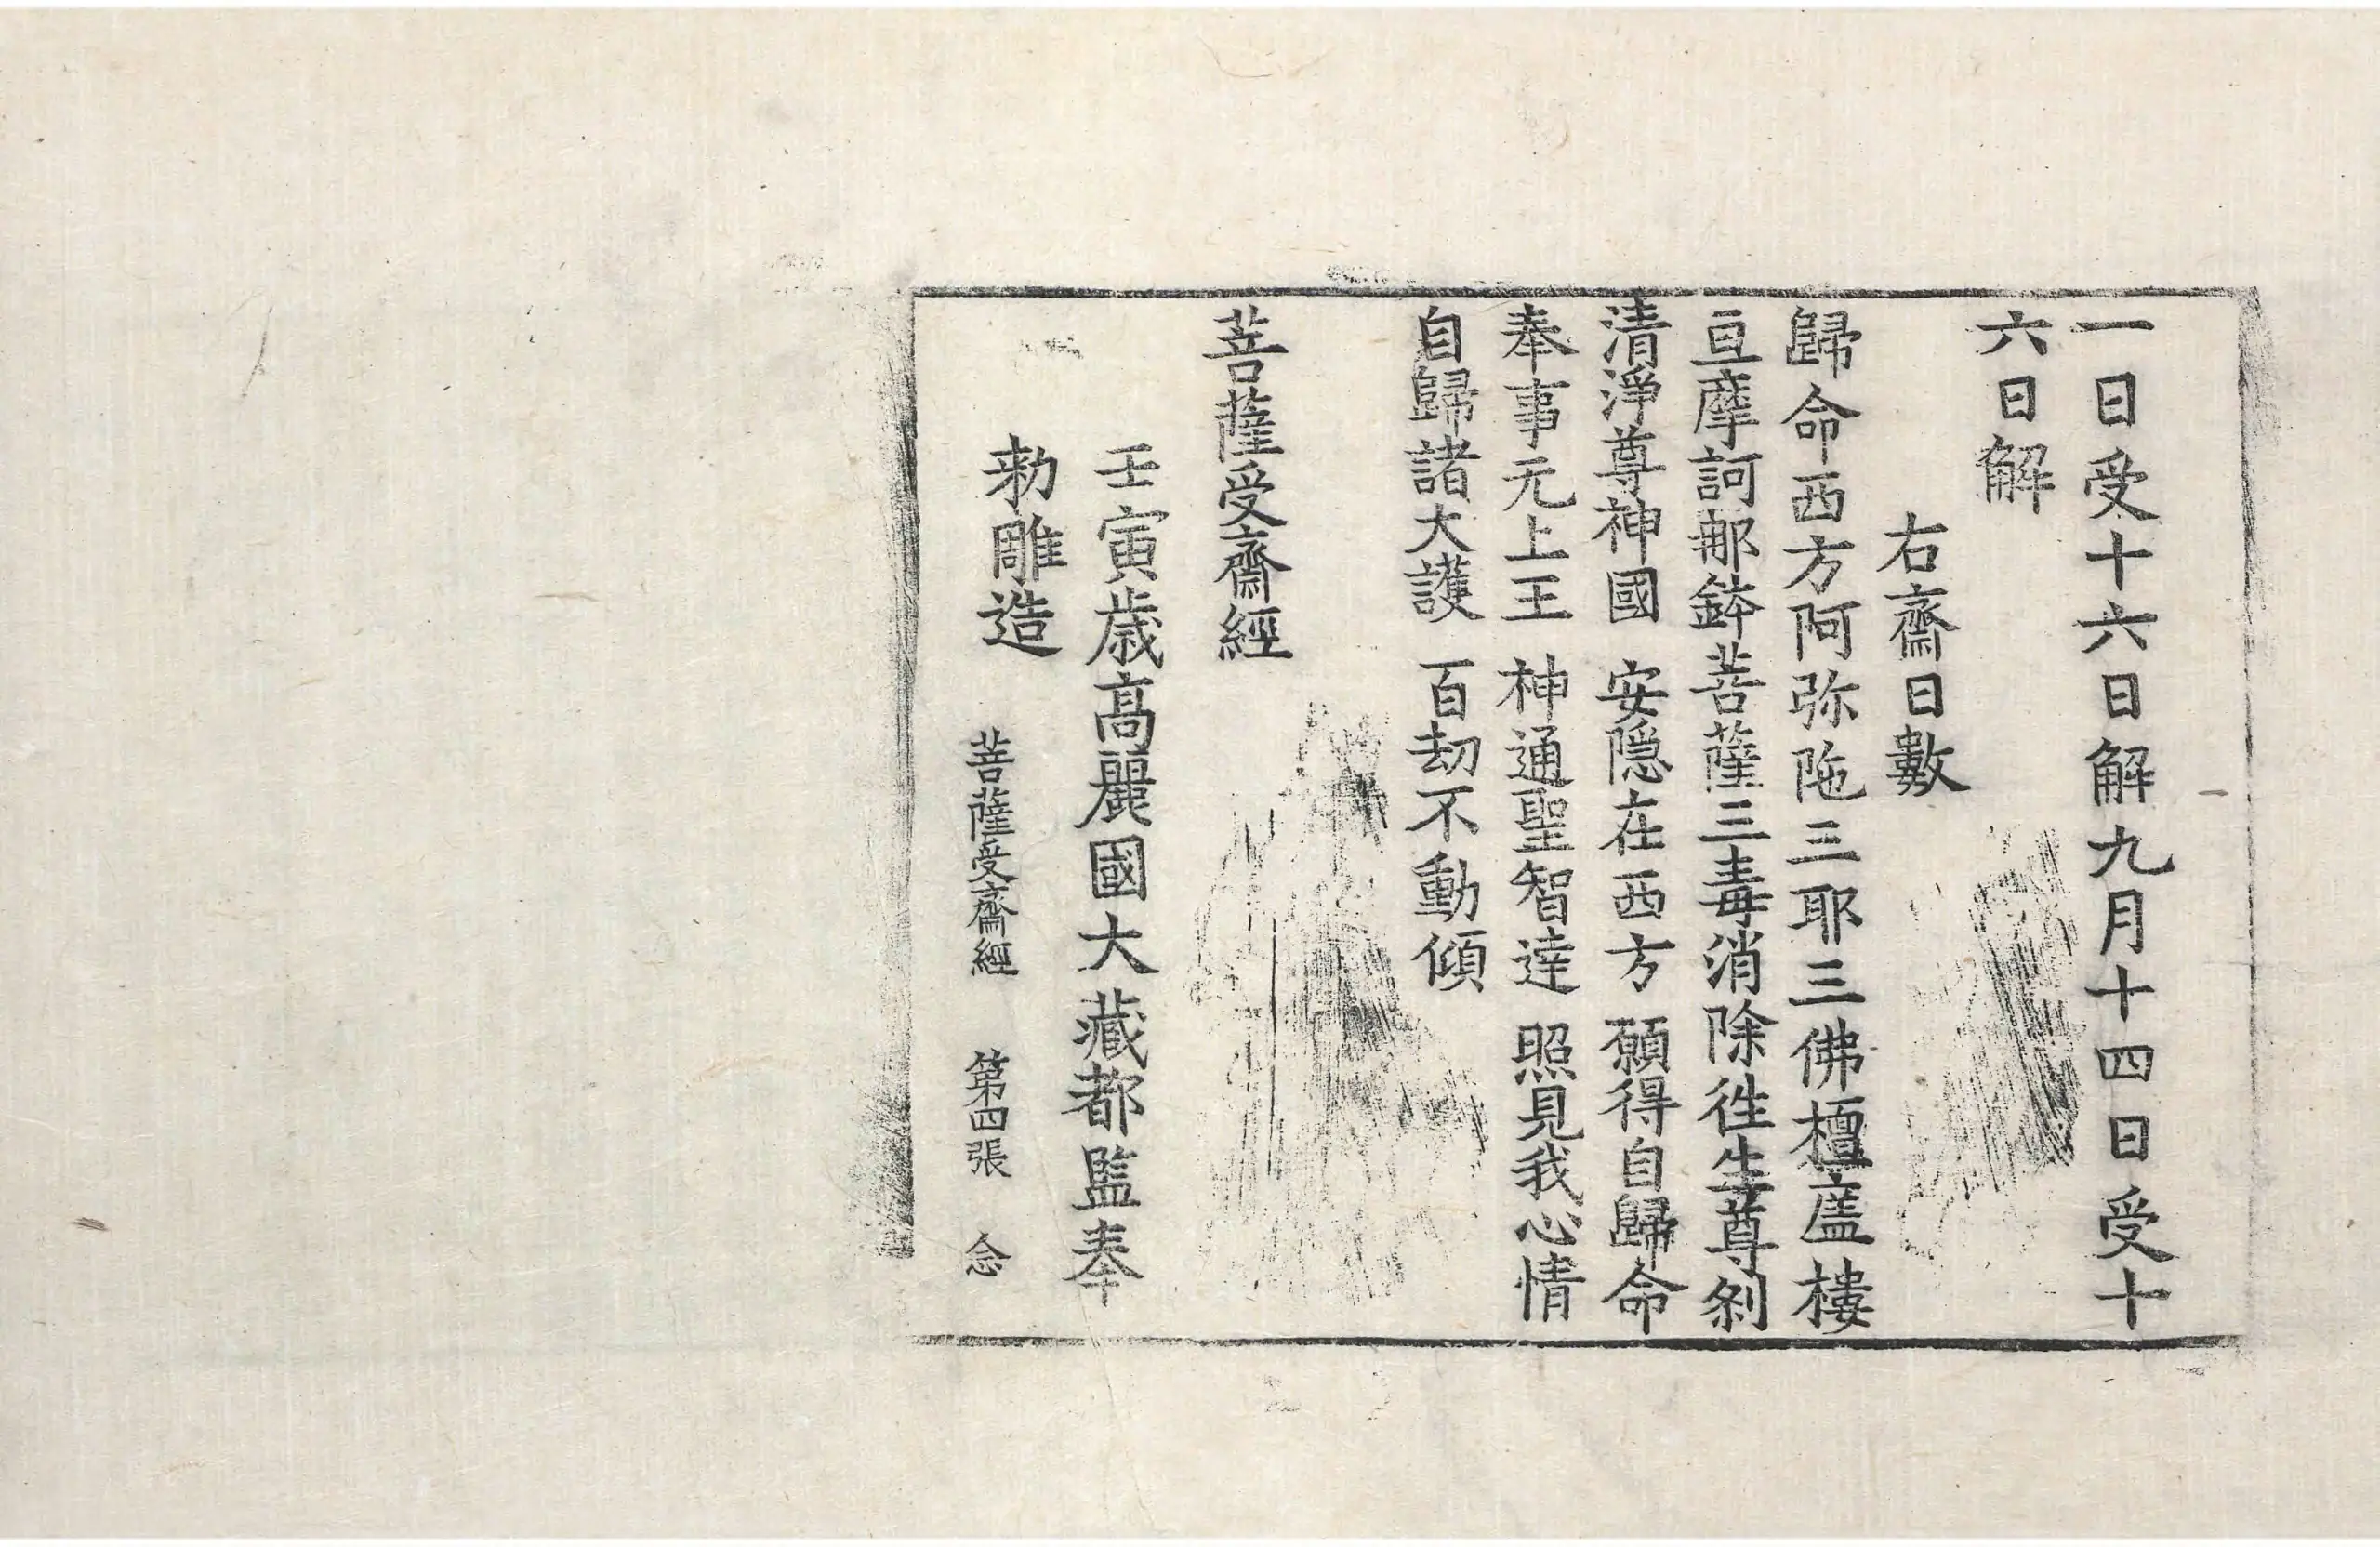 一日受十六日解九月十四日受十
六日解
右齋日數
歸命西方阿弥陁三耶三佛檀廬樓
亘摩訶那鉢菩薩三毒消除徃生尊剎
清淨尊神國 安隠在西方 願得自歸命
奉事元上王 神通聖智達 照見我心情
自歸諸大護 百劫不動傾
菩薩受齋經
壬寅歳高麗國大藏都監奉
勑雕造
菩薩受齋經 第四張 念